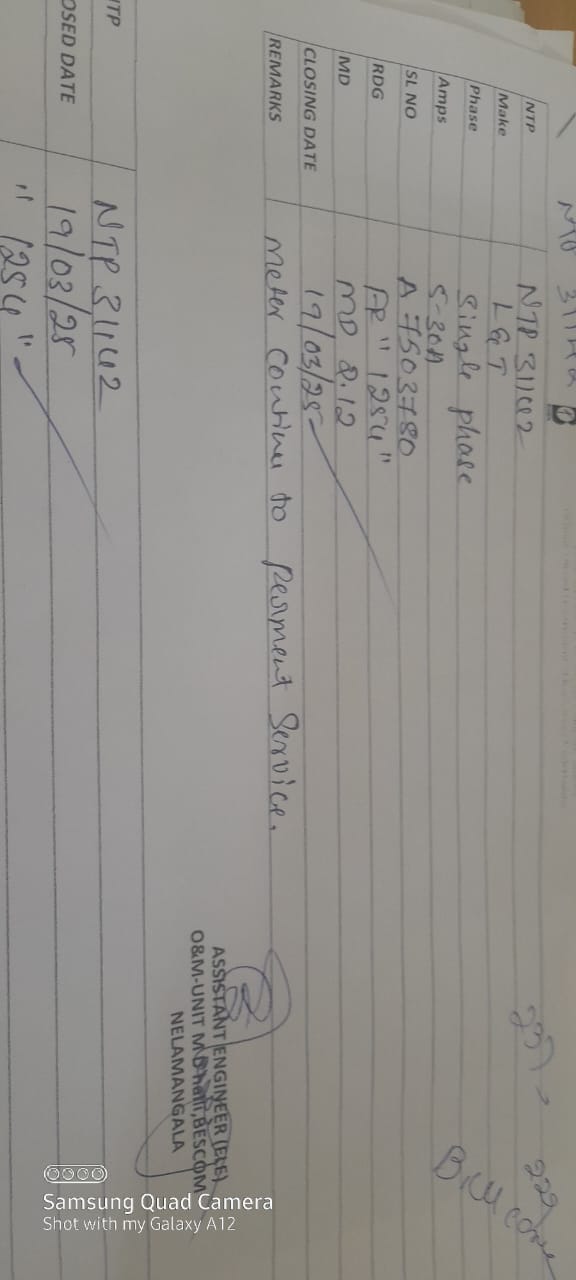 NTP 31142
NTP NTP 31142
Make L&T
Phase Single phase
Amps 5-30A
SL NO A 7503780
RDG FR "1254"
MD MD 2.12
CLOSING DATE 19/03/25
REMARKS Meter Continue to Perment Service.
ASSISTANT ENGINEER (ELE)
O&M-UNIT BESCOM
NELAMANGALA
NTP NTP 31142
OSED DATE 19/03/25
" 1254 "
Samsung Quad Camera
Shot with my Galaxy A12